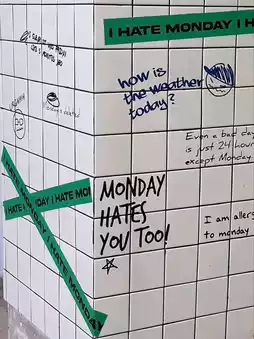 I HATE MONDAY I H
how is
the weather
today?
Even a bad da
is just 24 hour
except Monday
I HATE MONDAY I HATE MONDAY
I HATE
DAY I HATE MO
MONDAY
HATES
YOU TOO!
I am allerg
to monday